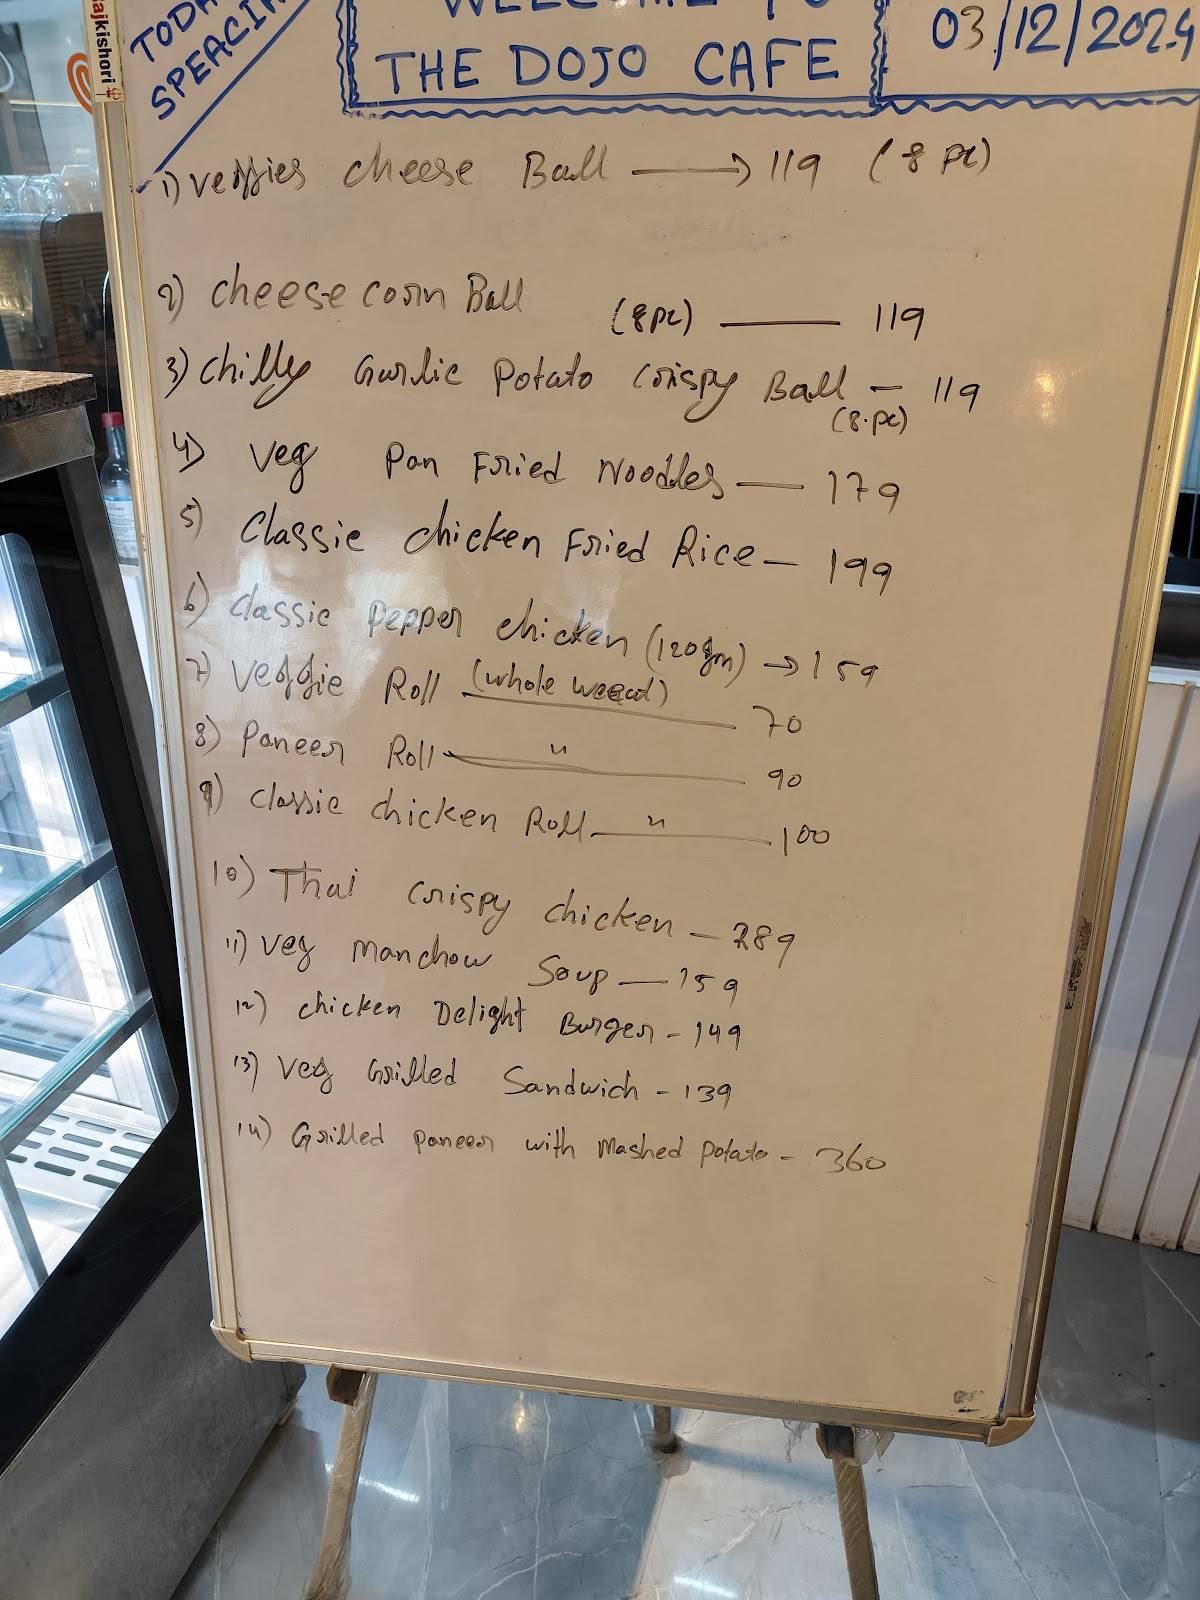 ajkishori
TODA
SPEACIA
WELCOME TO
THE DOJO CAFE
03/12/2024
1) Veggies cheese Ball → 119 (8 pc)
2) cheese corn Ball (8pc) — 119
3) Chilly Garlic Potato Crispy Ball — 119
(8.pc)
4) Veg Pan Fried Noodles — 179
5) Classic chicken Fried Rice — 199
6) classic Pepper chicken (120gm) → 159
7) Veggie Roll (whole weeat) — 70
8) Paneer Roll — " — 90
9) classic chicken Roll — " — 100
10) Thai crispy chicken — 289
11) Veg Manchow Soup — 159
12) chicken Delight Burger - 149
13) Veg Grilled Sandwich - 139
14) Grilled paneer with Mashed potato - 360